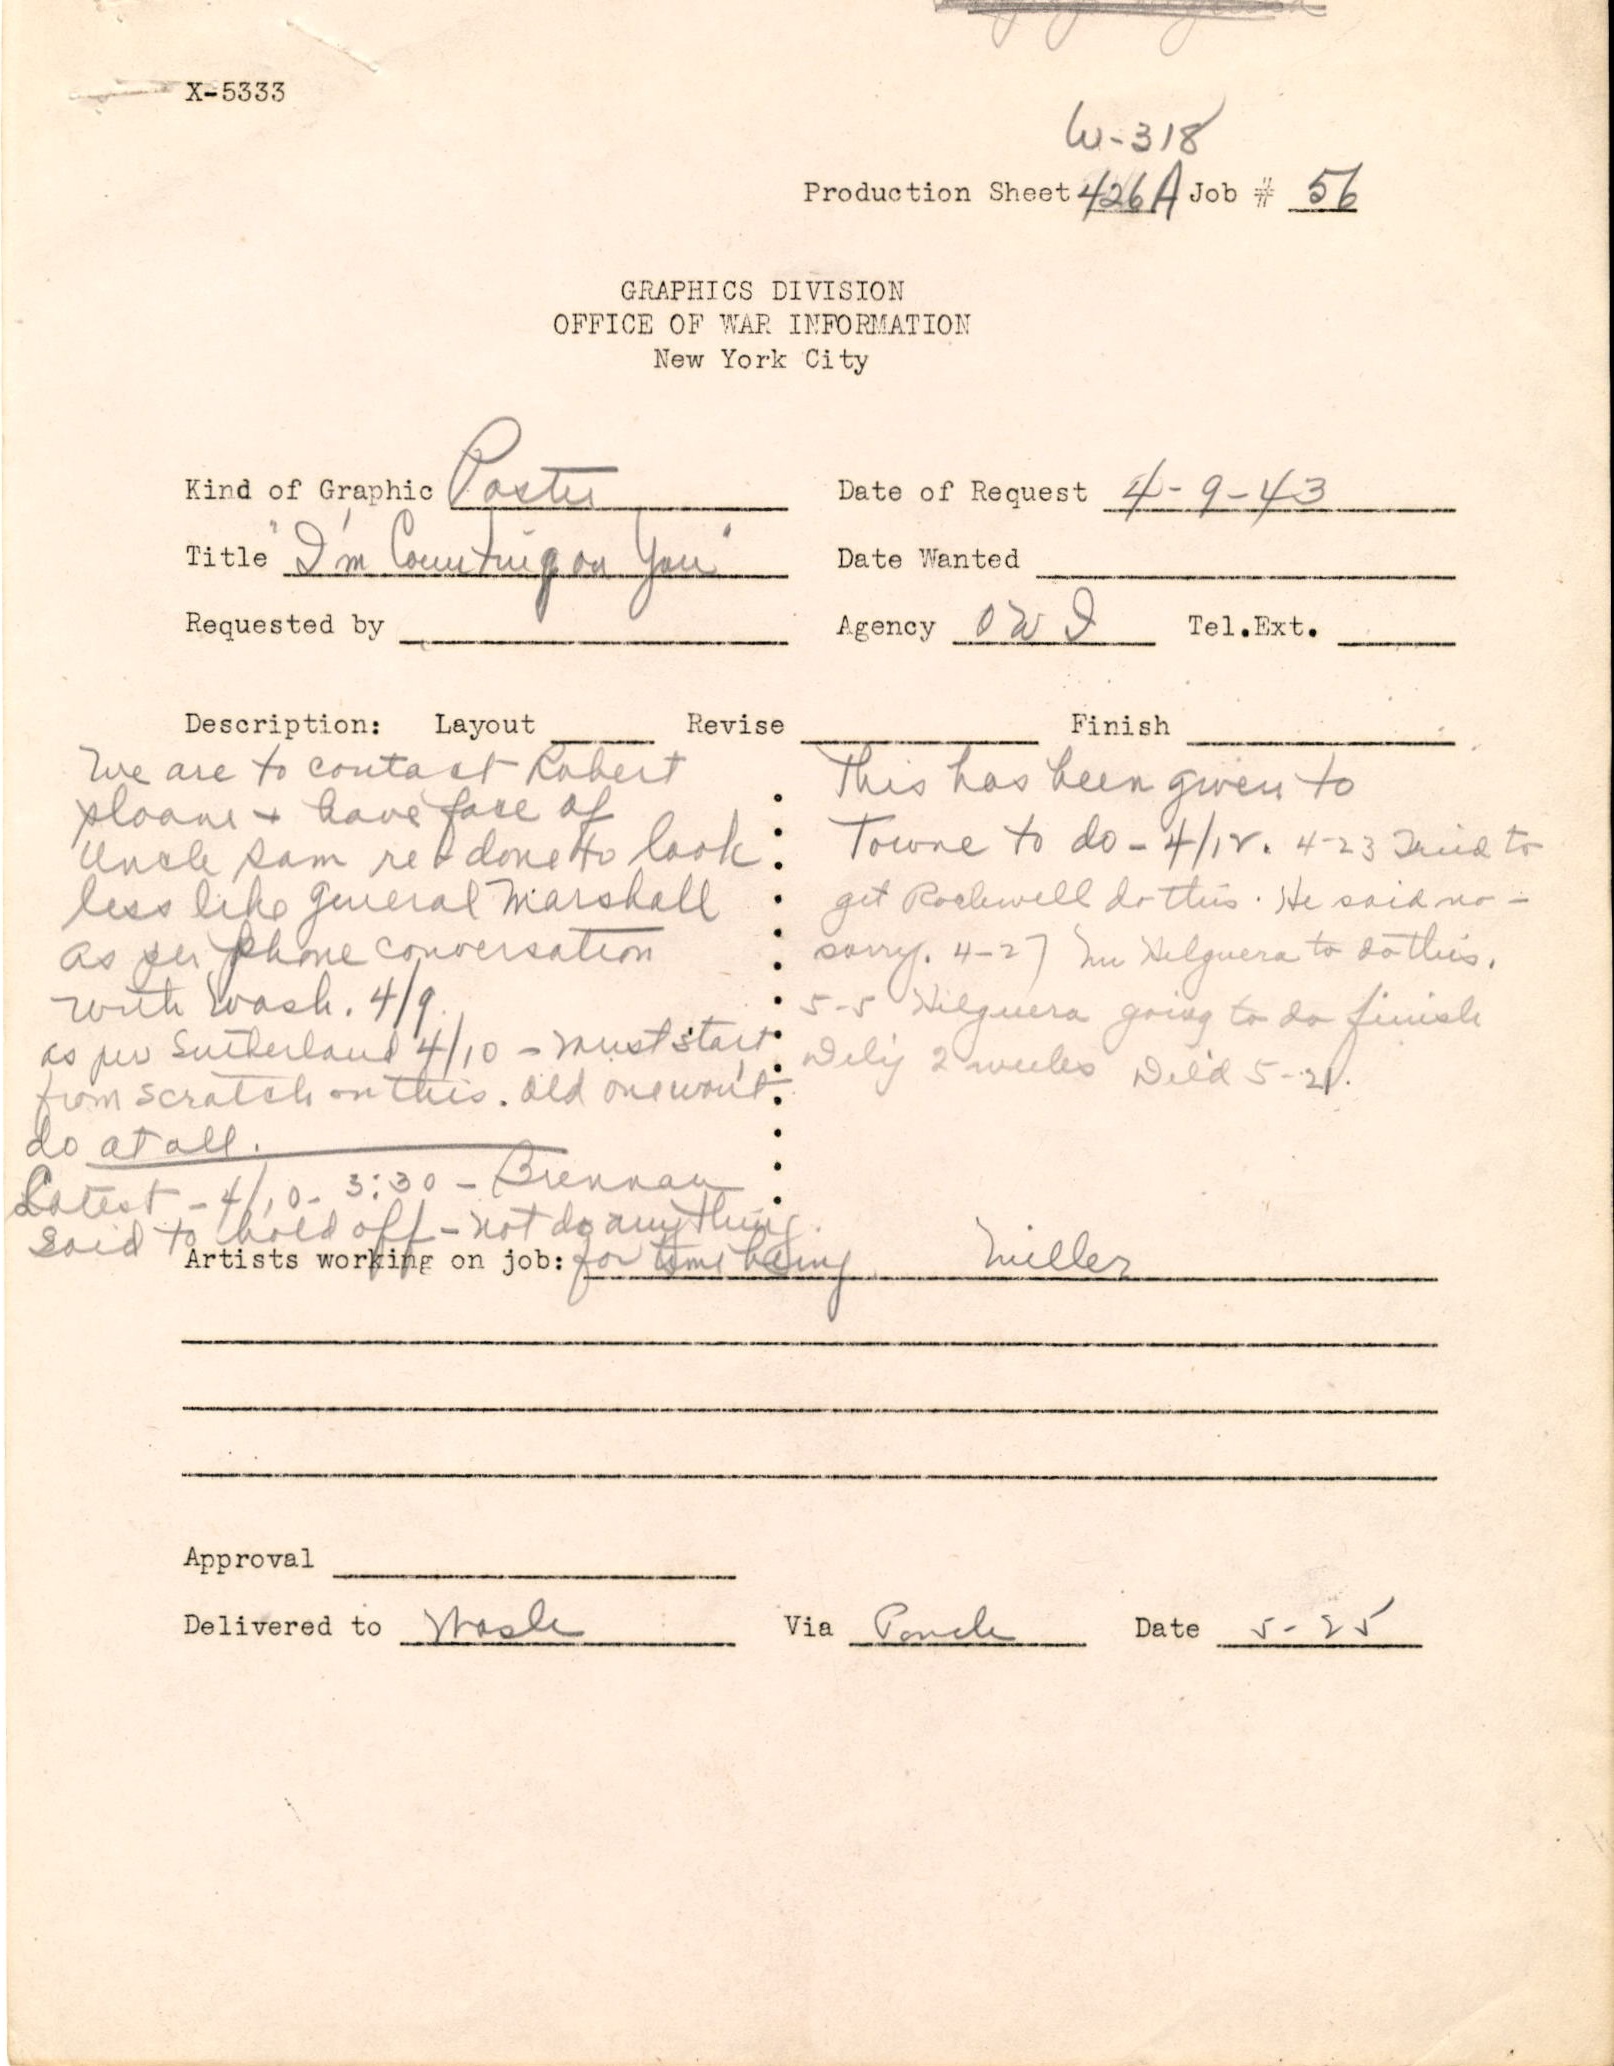 X-5333
W-318
Production Sheet 426A Job # 56
GRAPHICS DIVISION
OFFICE OF WAR INFORMATION
New York City
Kind of Graphic Poster
Date of Request 4-9-43
Title "I'm Counting on You"
Date Wanted
Requested by
Agency OWI Tel.Ext.
Description: Layout Revise Finish
We are to contact Robert
Sloane + have face of
Uncle Sam re-done to look
less like General Marshall
as per phone conversation
with Wash. 4/9.
as per Sutherland 4/10 - must start
from scratch on this. Old one won't
do at all.
Latest - 4/10 - 3:30 - Brennan
said to hold off - not do anything
for time being
This has been given to
Towne to do - 4/12. 4-23 Tried to
get Rockwell do this. He said no -
sorry. 4-27 Helguera to do this.
5-5 Helguera going to do finish
Del'y 2 weeks Del'd 5-21.
Artists working on job: Miller
Approval
Delivered to Wash Via Pouch Date 5-25